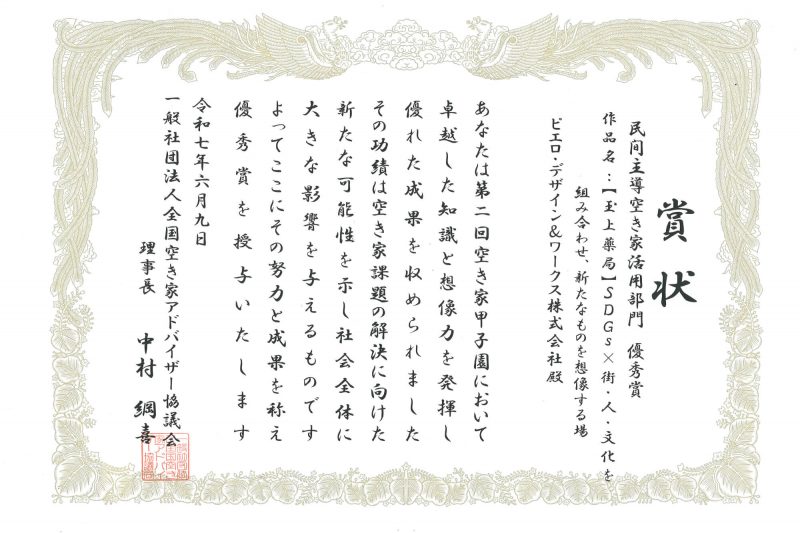 賞状
民間主導空き家活用部門 優秀賞
作品名：【玉上薬局】SDGs×街・人・文化を
組み合わせ、新たなものを想像する場
ピエロ・デザイン&ワークス株式会社 殿
あなたは第二回空き家甲子園において
卓越した知識と想像力を発揮し
優れた成果を収められました
その功績は空き家課題の解決に向けた
新たな可能性を示し社会全体に
大きな影響を与えるものです
よってここにその努力と成果を称え
優秀賞を授与いたします
令和七年六月九日
一般社団法人全国空き家アドバイザー協議会
理事長 中村 綱喜